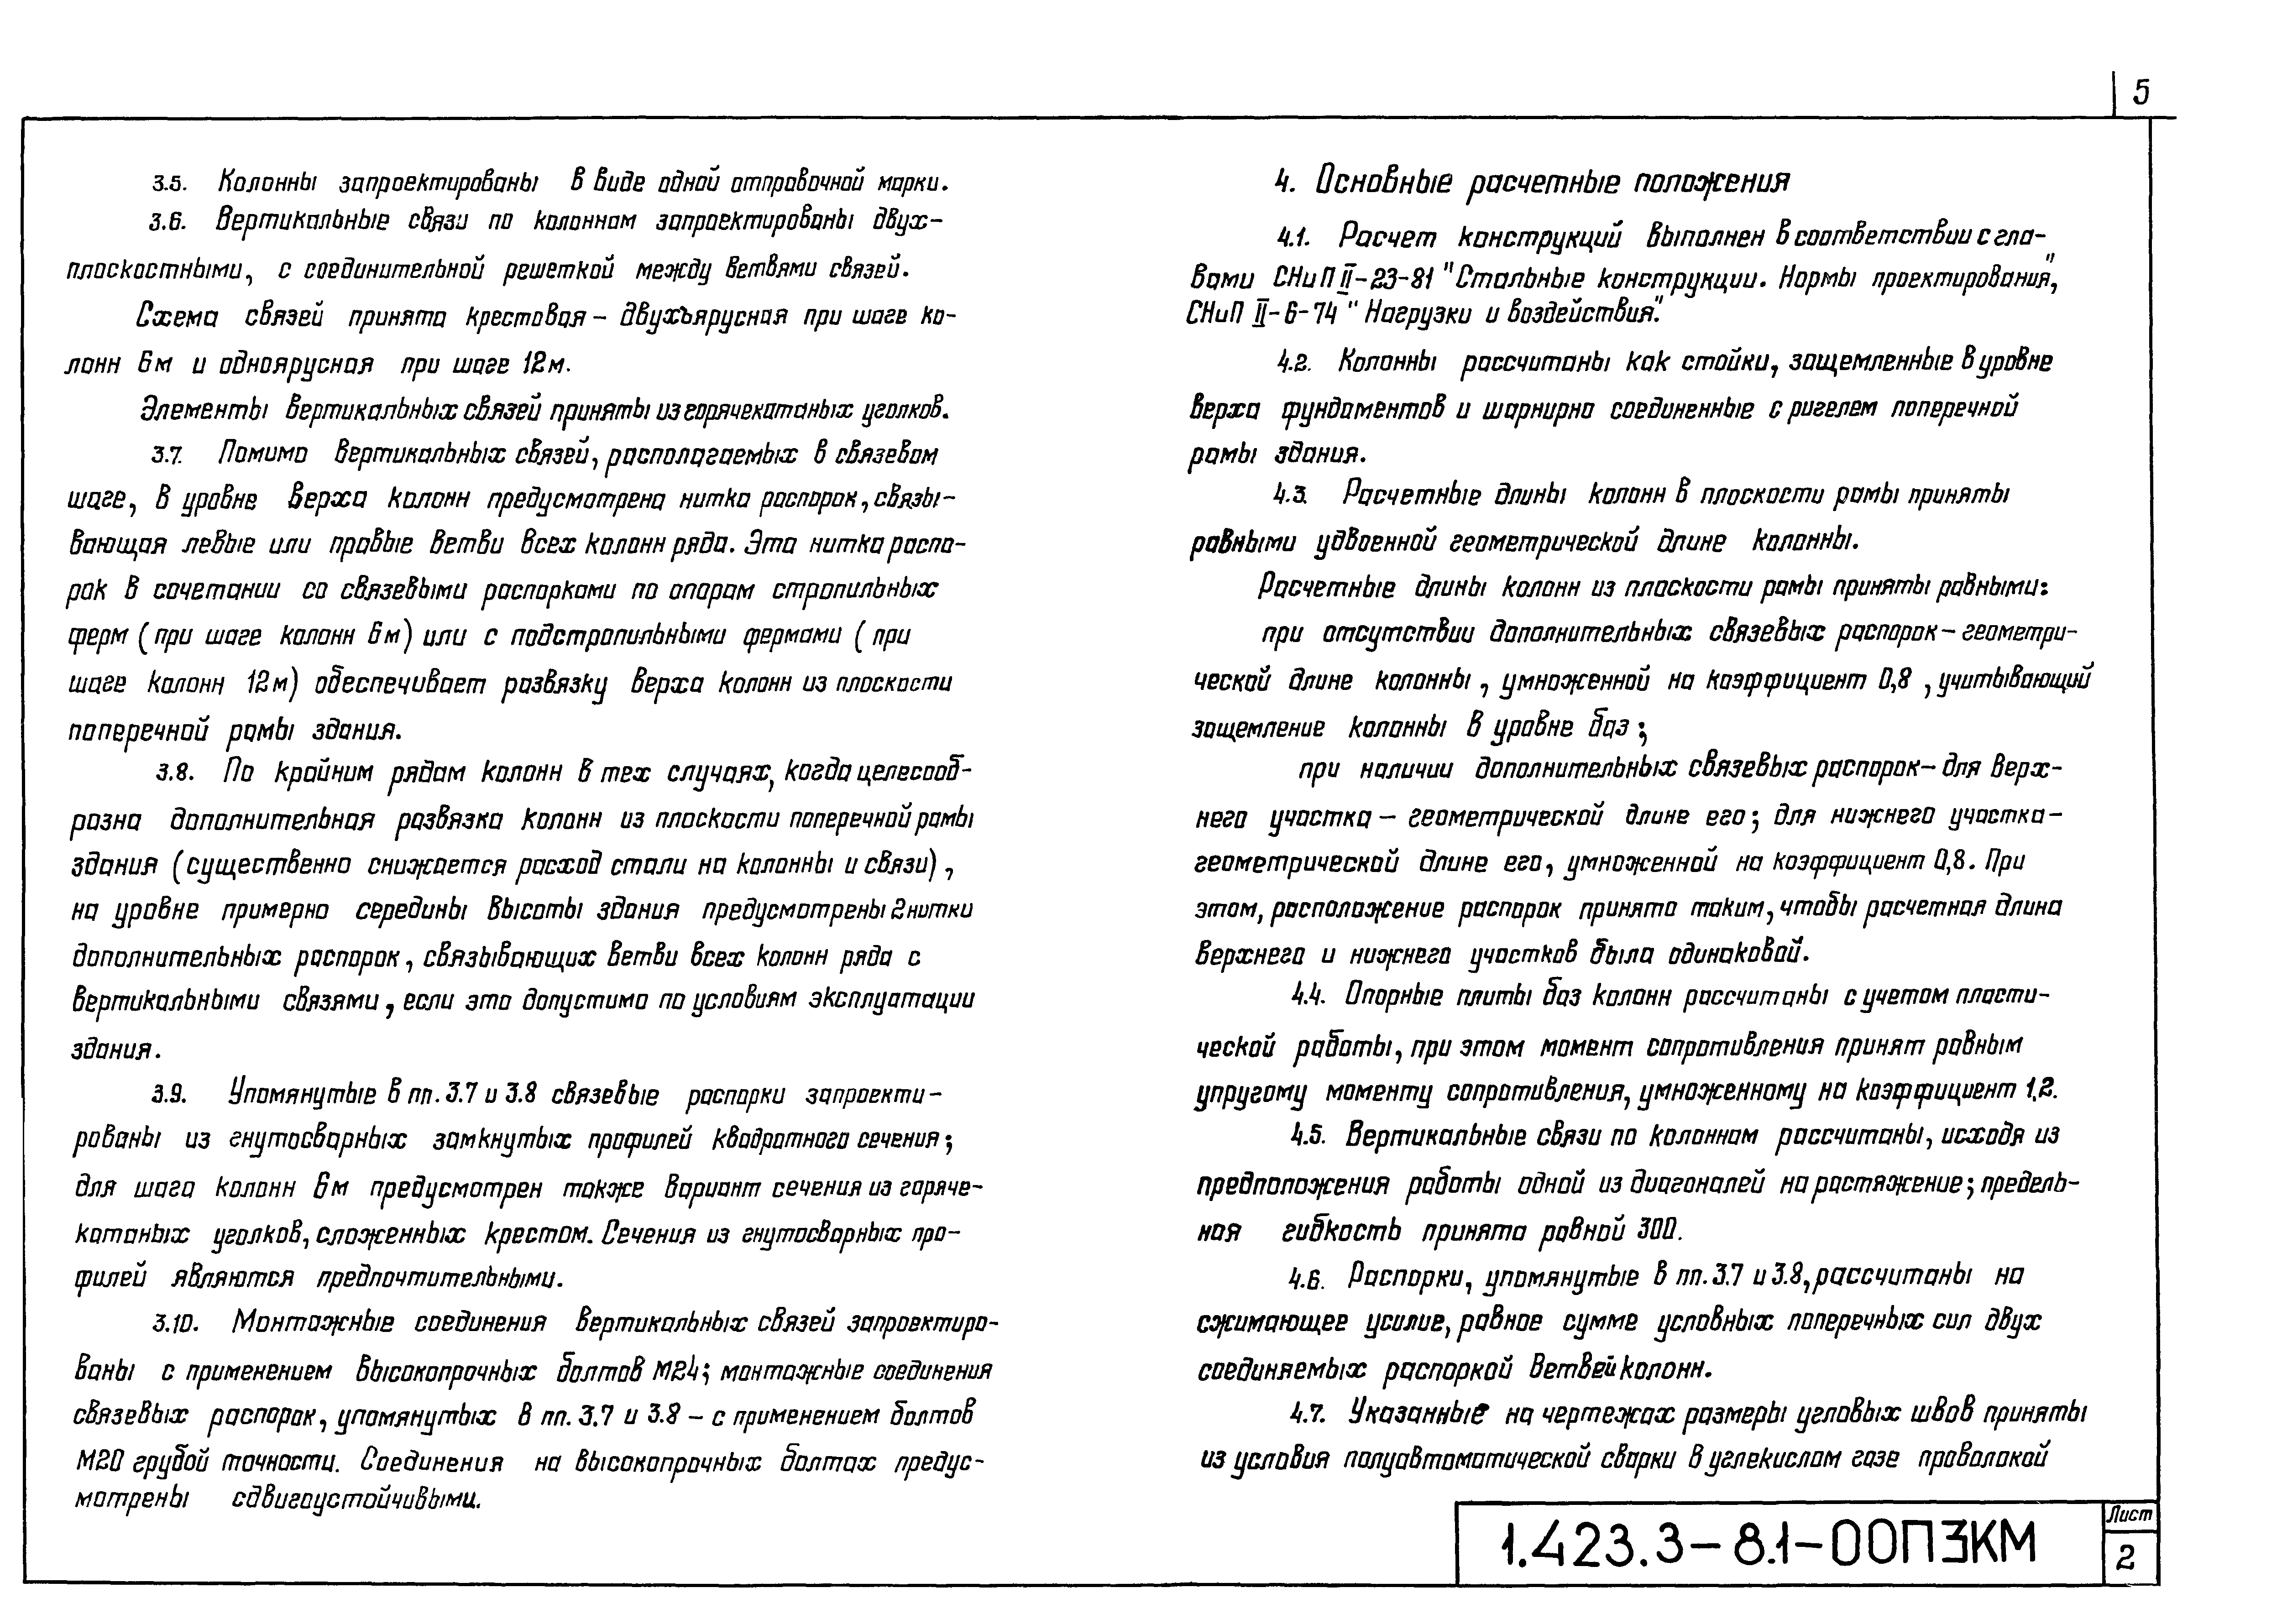 5
3.5. Колонны запроектированы в виде одной отправочной марки.
3.6. Вертикальные связи по колоннам запроектированы двух-
плоскостными, с соединительной решеткой между ветвями связей.
Схема связей принята крестовая – двухъярусная при шаге ко-
лонн 6м и одноярусная при шаге 12м.
Элементы вертикальных связей приняты из горячекатаных уголков.
3.7. Помимо вертикальных связей, располагаемых в связевом
шаге, в уровне верха колонн предусмотрена нитка распорок, связы-
вающая левые или правые ветви всех колонн ряда. Эта нитка распо-
рок в сочетании со связевыми распорками по опорам стропильных
ферм (при шаге колонн 6м) или с подстропильными фермами (при
шаге колонн 12м) обеспечивает развязку верха колонн из плоскости
поперечной рамы здания.
3.8. По крайним рядам колонн в тех случаях, когда целесооб-
разна дополнительная развязка колонн из плоскости поперечной рамы
здания (существенно снижается расход стали на колонны и связи),
на уровне примерно середины высоты здания предусмотрены 2 нитки
дополнительных распорок, связывающих ветви всех колонн ряда с
вертикальными связями, если это допустимо по условиям эксплуатации
здания.
3.9. Упомянутые в пп. 3.7 и 3.8 связевые распорки запроекти-
рованы из гнутосварных замкнутых профилей квадратного сечения;
для шага колонн 6м предусмотрен также вариант сечения из горяче-
катаных уголков, сложенных крестом. Сечения из гнутосварных про-
филей являются предпочтительными.
3.10. Монтажные соединения вертикальных связей запроектиро-
ваны с применением высокопрочных болтов М24; монтажные соединения
связевых распорок, упомянутых в пп. 3.7 и 3.8 – с применением болтов
М20 грубой точности. Соединения на высокопрочных болтах предус-
мотрены сдвигоустойчивыми.
4. Основные расчетные положения
4.1. Расчет конструкций выполнен в соответствии с гла-
вами СНиП II-23-81 "Стальные конструкции. Нормы проектирования",
СНиП II-6-74 "Нагрузки и воздействия".
4.2. Колонны рассчитаны как стойки, защемленные в уровне
верха фундаментов и шарнирно соединенные с ригелем поперечной
рамы здания.
4.3. Расчетные длины колонн в плоскости рамы приняты
равными удвоенной геометрической длине колонны.
Расчетные длины колонн из плоскости рамы приняты равными:
при отсутствии дополнительных связевых распорок – геометри-
ческой длине колонны, умноженной на коэффициент 0,8, учитывающий
защемление колонны в уровне баз;
при наличии дополнительных связевых распорок – для верх-
него участка – геометрической длине его; для нижнего участка –
геометрической длине его, умноженной на коэффициент 0,8. При
этом, расположение распорок принято таким, чтобы расчетная длина
верхнего и нижнего участков была одинаковой.
4.4. Опорные плиты баз колонн рассчитаны с учетом пласти-
ческой работы, при этом момент сопротивления принят равным
упругому моменту сопротивления, умноженному на коэффициент 1,2.
4.5. Вертикальные связи по колоннам рассчитаны, исходя из
предположения работы одной из диагоналей на растяжение; предель-
ная гибкость принята равной 300.
4.6. Распорки, упомянутые в пп. 3.7 и 3.8, рассчитаны на
сжимающее усилие, равное сумме условных поперечных сил двух
соединяемых распоркой ветвей колонн.
4.7. Указанные на чертежах размеры угловых швов приняты
из условия полуавтоматической сварки в углекислом газе проволокой
1.423.3-8.1-00ПЗКМ
Лист
2